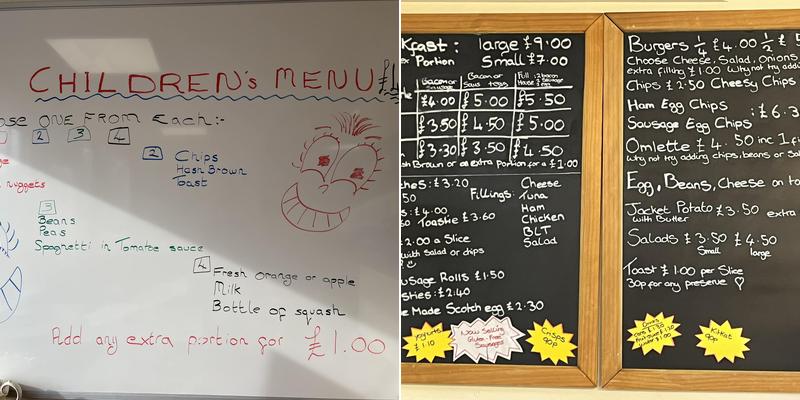 CHILDREN'S MENU
ONE FROM Each:-
2 3 4
nuggets
2 Chips
Hash Brown
Toast
3
Beans
Peas
Spaghetti in Tomatoe sauce
4 Fresh orange or apple
Milk
Bottle of squash
Add any extra portion for £1.00
large £9.00
Portion Small £7.00
Bacon or Sausage
Bacon or Saus + eggs
Full
£4.00 £5.00 £5.50
£3.50 £4.50 £5.00
£3.30 £3.50 £4.50
Brown or an extra portion for a £1.00
£3.20
50
Fillings:
Cheese
Tuna
Ham
Chicken
BLT
Salad
£4.00
Toastie £3.60
2.00 a Slice
with Salad or chips
Rolls £1.50
£2.40
Made Scotch egg £2.30
Yogurts £1.10
Now Selling Gluten-Free Sausages
Crisps 90p
Burgers ¼ £4.00 ½ £
Choose Cheese, Salad, Onions
extra filling £1.00 Why not try
Chips £2.50 Cheesy Chips
Ham Egg Chips
Sausage Egg Chips
:£6.3
Omlette £4.50 inc 1
Why not try adding chips, beans or
Egg, Beans, Cheese on
Jacket Potato £3.50 extra
with Butter
Salads £3.50 £4.50
Small large
Toast £1.00 per Slice
30p for any preserve
KitKat 90p